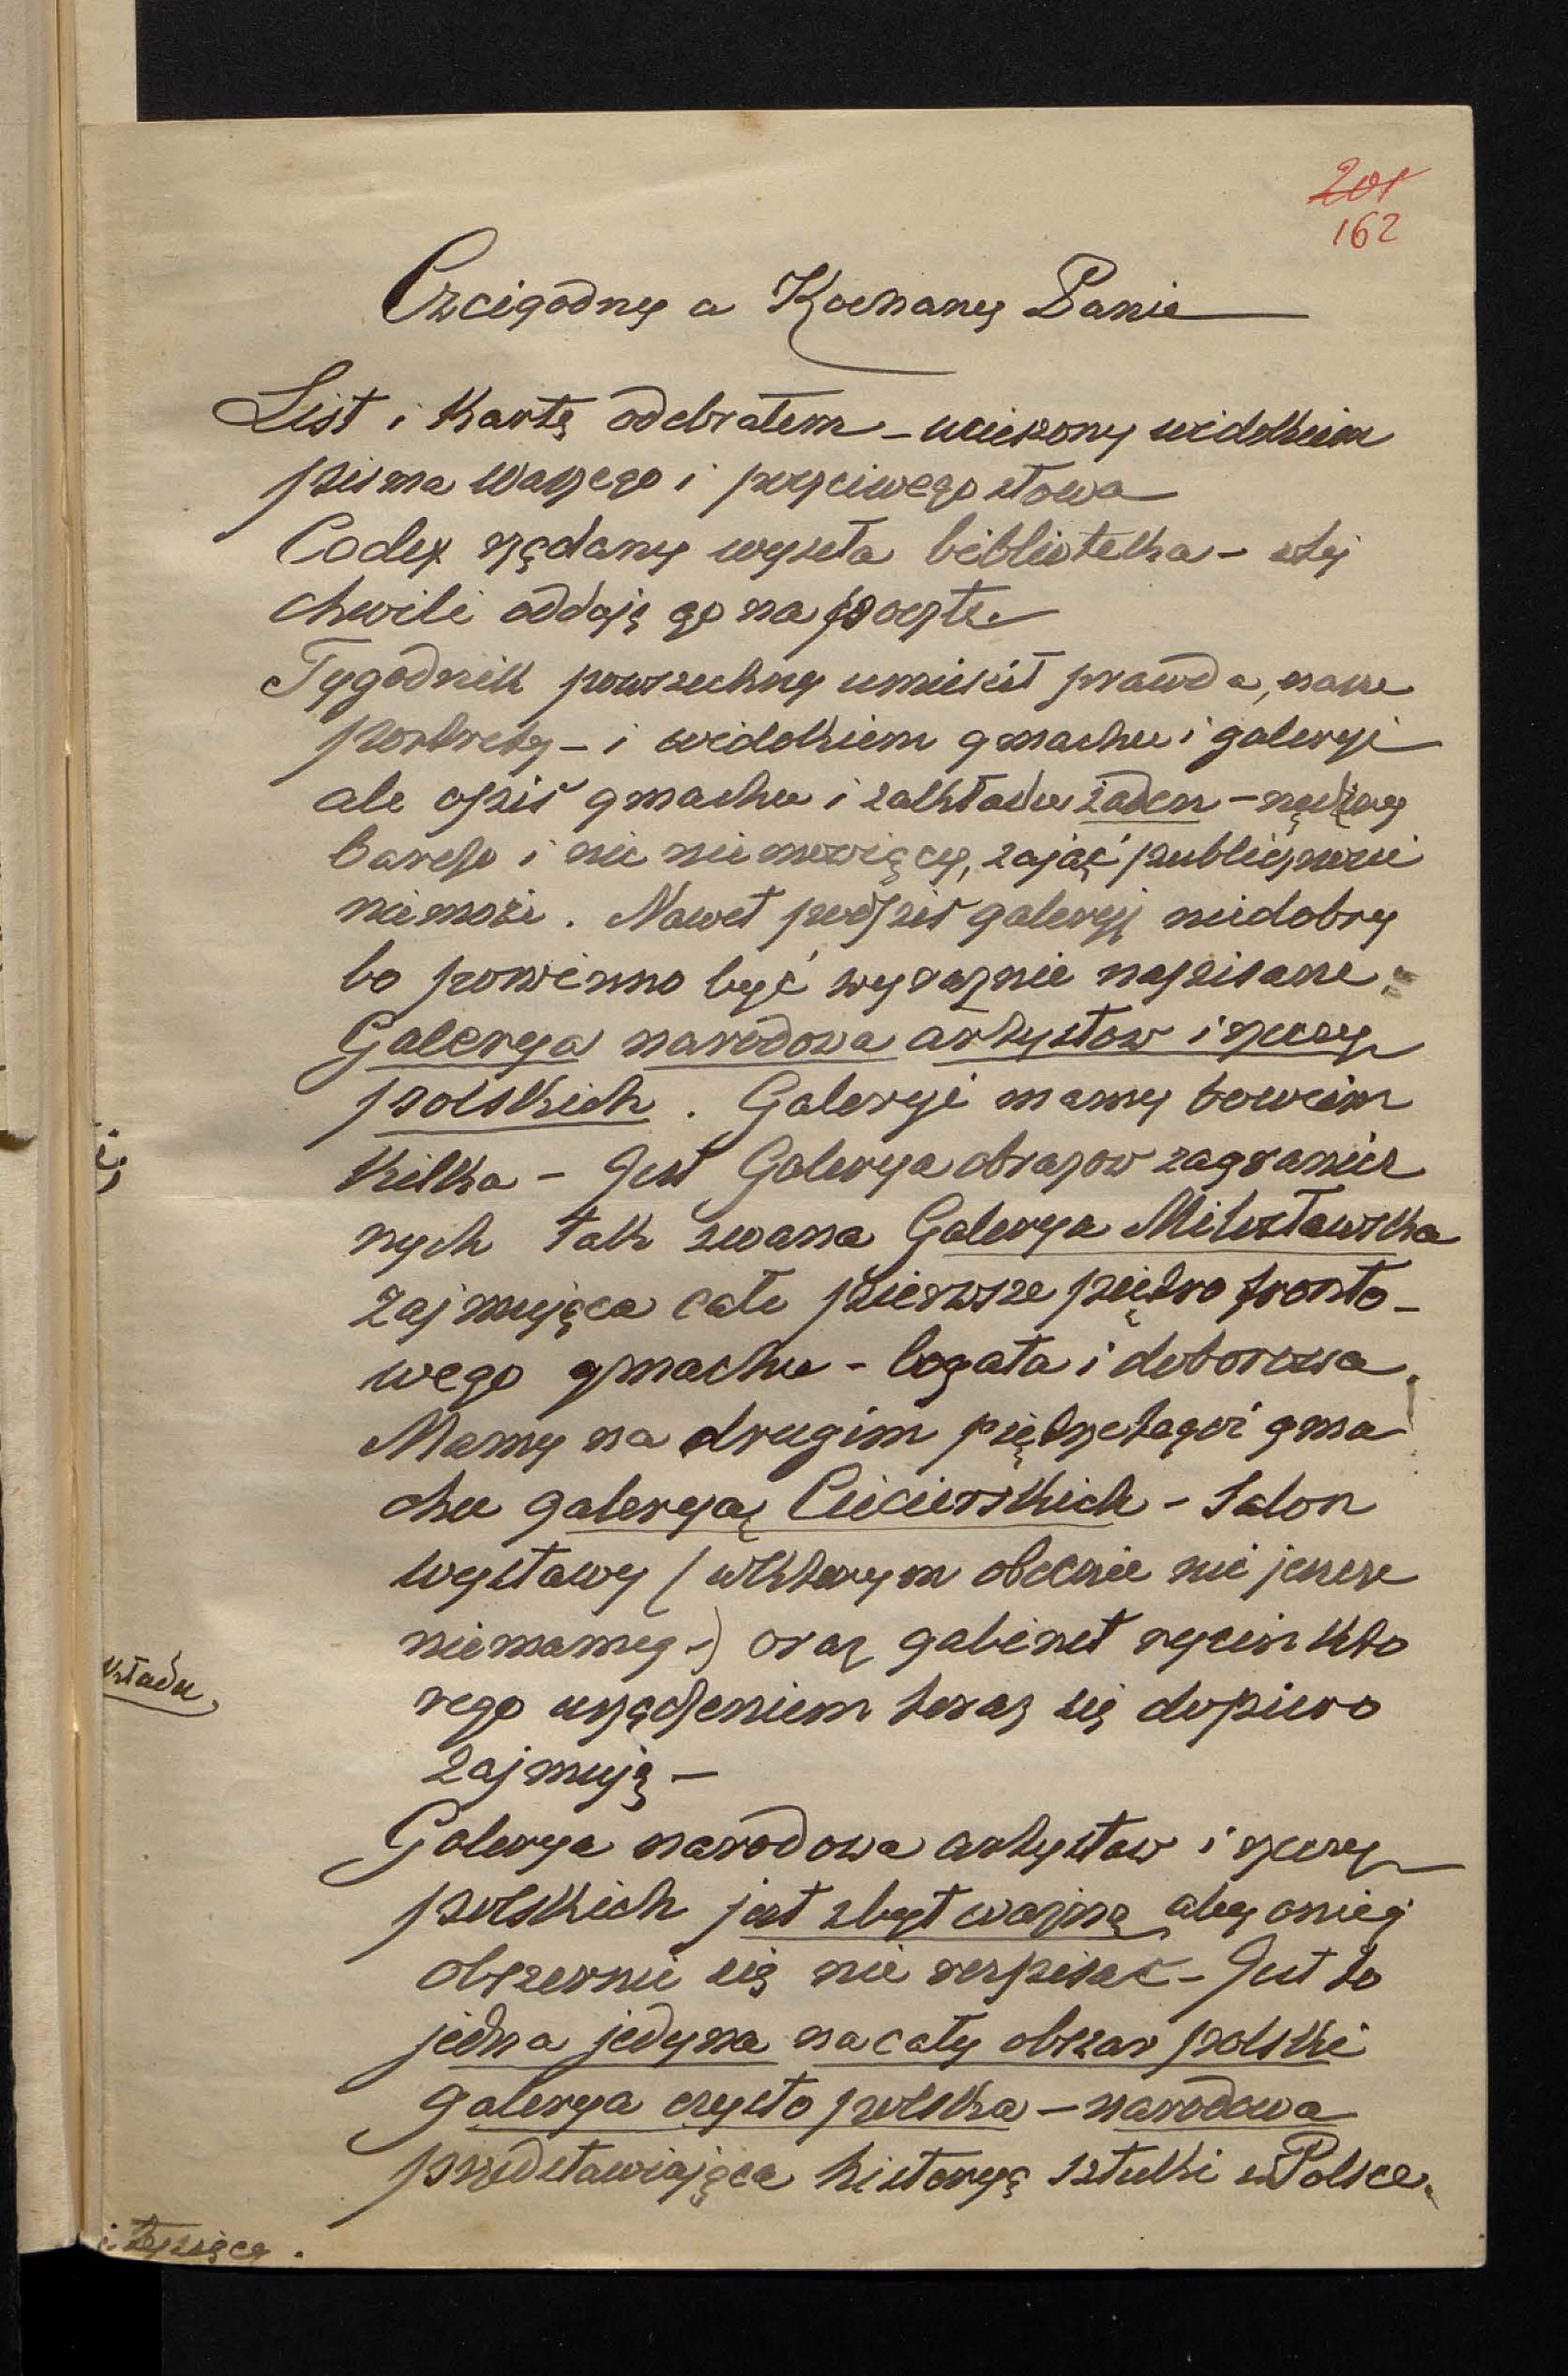 201
162
Czcigodny a Kochany Panie
List i Kartę odebrałem – ucieszony widokiem
pisma Waszego i poczciwego słowa
Codex rządany wyseła biblioteka – wtej
chwili oddaję go na pocztę
Tygodnik powszechny umieścił prawda, nasze
portrety – i widokiem gmachu i galeryi
ale opis gmachu i zakładu żaden – nędzny
bardzo i nic niemowiący, zająć publiczności
niemoże. Nawet podpis galeryj niedobry
bo powinno być wyraznie napisane:
Galerya narodowa artystow i rzeczy
polskich. Galeryi mamy bowiem
Kilka – Jest Galerya obrazow zagranicz
nych tak zwana Galerya Miłosławska
zajmująca całe pierwsze piętro fronto-
wego gmachu – bogata i doborowa.
Mamy na drugim piętrze tegoż gma
chu galeryą Ciecierskich – Salon
wystawy (wktorym obecnie nic jeszcze
niemamy –) oraz gabinet rycin kto
rego urządzeniem teraz się dopiero
zajmuję –
Galerya narodowa artystow i rzeczy
polskich jest zbyt ważną aby oniej
obszernie się nie rozpisać – Jest to
jedna jedyna na cały obszar polski
galerya czysto polska – narodowa
przedstawiająca historyą sztuki w Polsce.